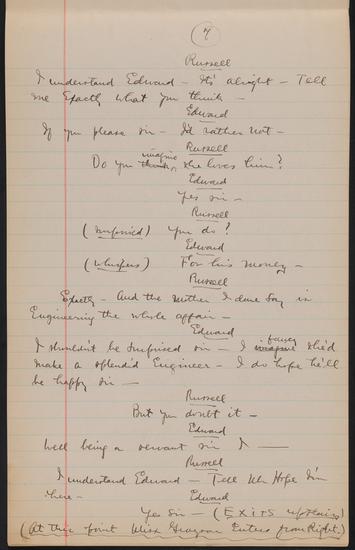 (7)
Russell
I understand Edward - It's alright - Tell
me Exactly what you think -
Edward
If you please sir - I'd rather not -
Russell
imagine
Do you think, she loves him?
Edward
Yes sir -
Russell
(surprised) You do?
Edward
(whispers) For his money -
Russell
Exactly - And the Mother I dare say is
Engineering the whole affair -
Edward
fancy
I shouldn't be surprised sir - I imagine she'd
make a splendid Engineer - I do hope he'll
be happy sir -
Russell
But you doubt it -
Edward
Well being a servant sir I -
Russell
I understand Edward - Tell Mr Hope I'm
here -
Edward
Yes Sir - (Exits upstairs)
(At this point Miss Enters from Right.)